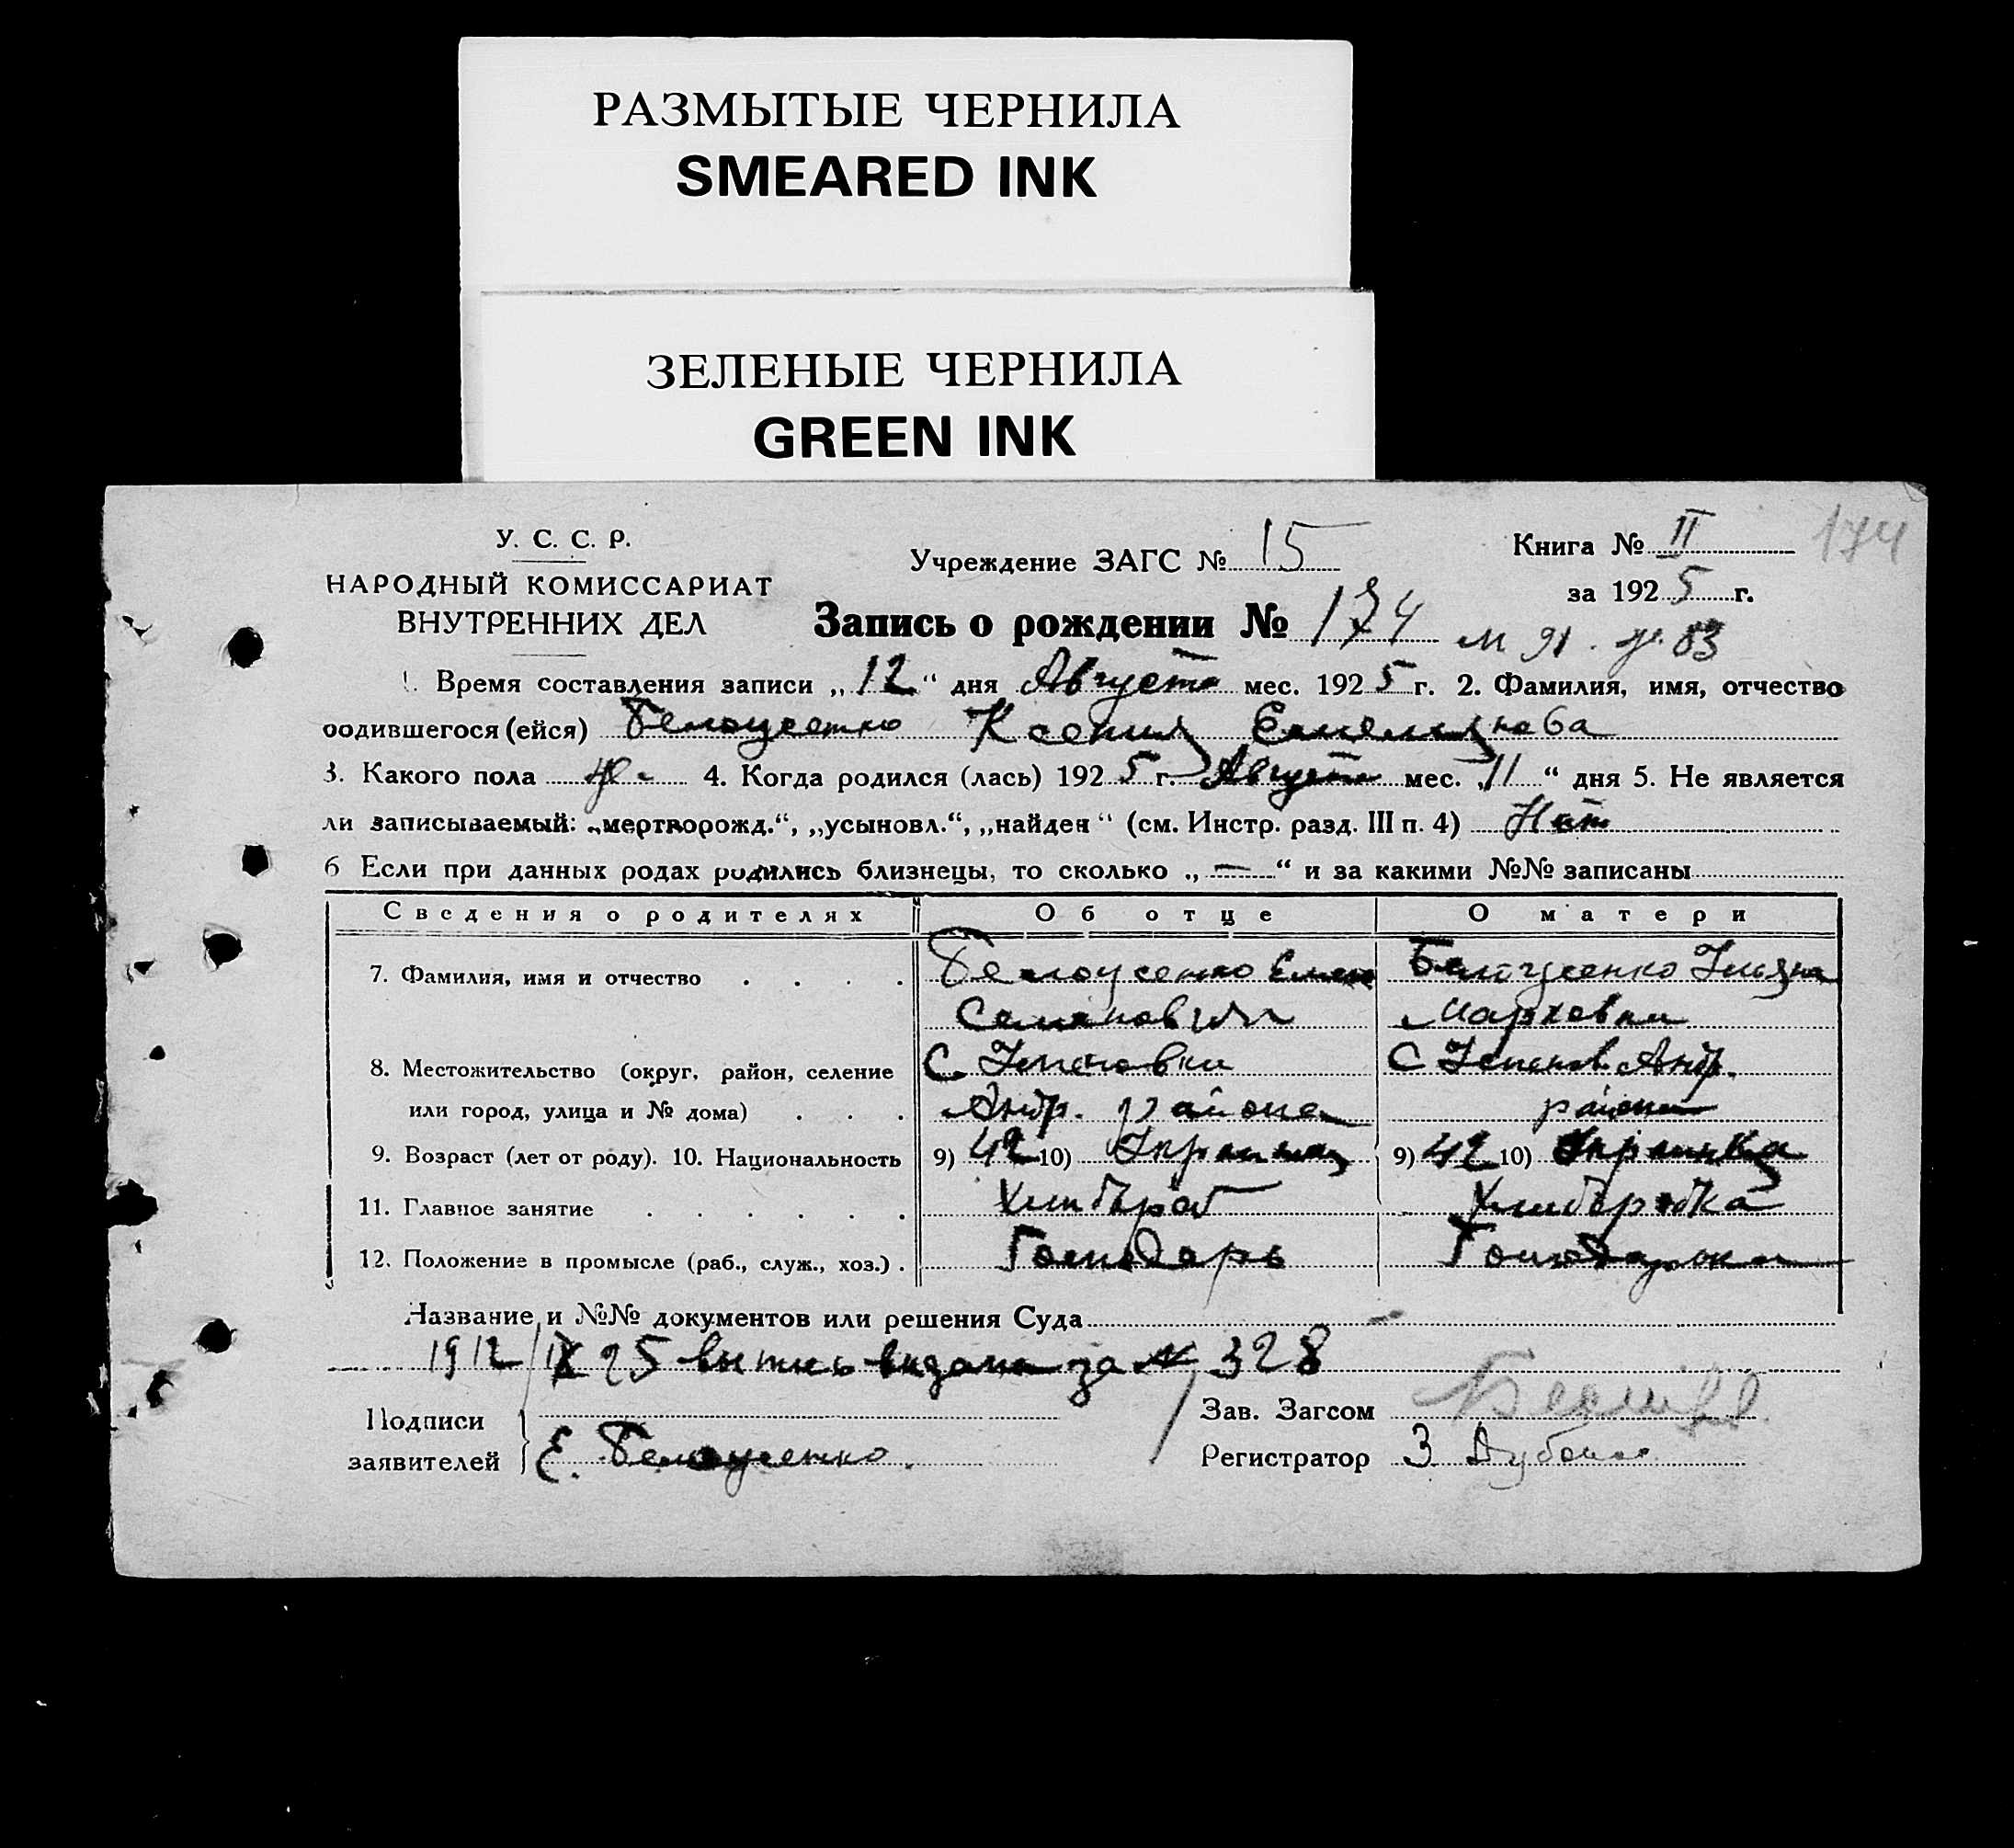 РАЗМЫТЫЕ ЧЕРНИЛА
SMEARED INK
ЗЕЛЕНЫЕ ЧЕРНИЛА
GREEN INK
У. С. С. Р.
НАРОДНЫЙ КОМИССАРИАТ
ВНУТРЕННИХ ДЕЛ
Учреждение ЗАГС № 15
Книга № II
174
за 1925 г.
Запись о рождении № 174 м 91. ж. 83
1. Время составления записи „12“ дня Августа мес. 1925 г. 2. Фамилия, имя, отчество
родившегося (ейся) Белоусенко Ксения Емельянова
3. Какого пола ж. 4. Когда родился (лась) 1925 г. Августа мес. „11“ дня 5. Не является
ли записываемый: „мертворожд.“, „усыновл.“, „найден“ (см. Инстр. разд. III п. 4) Нет
6 Если при данных родах родились близнецы, то сколько „—“ и за какими №№ записаны
Сведения о родителях Об отце О матери
7. Фамилия, имя и отчество Белоусенко Емел Белоусенко Ульяна
Семенович Марковна
8. Местожительство (округ, район, селение С. С
или город, улица и № дома) Андр. района Андр. района
9. Возраст (лет от роду). 10. Национальность 9) 42 10) Украинец 9) 42 10) Украинка
11. Главное занятие Хлибороб Хлиборобка
12. Положение в промысле (раб., служ., хоз.) Господарь Господарка
Название и №№ документов или решения Суда —
1912/IX 25 видана за № 328
Подписи
заявителей Е. Белоусенко.
Зав. Загсом
Регистратор З